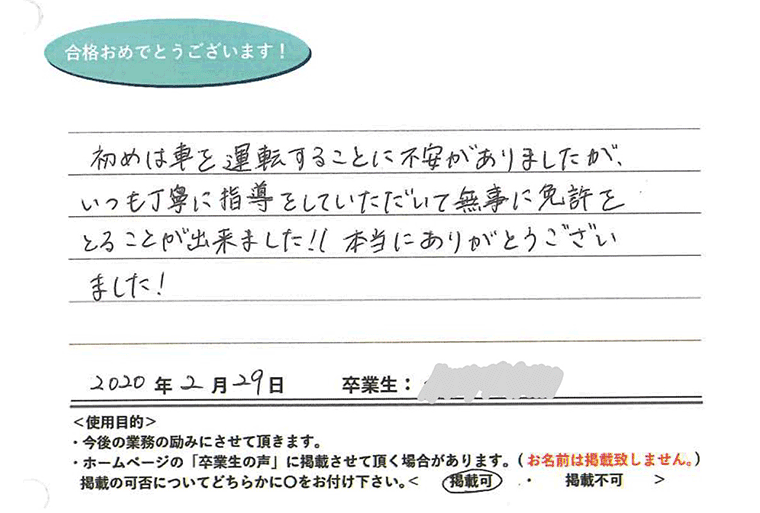 合格おめでとうございます！
初めは車を運転することに不安がありましたが、
いつも丁寧に指導をしていただいて無事に免許を
とることが出来ました!! 本当にありがとうござい
ました!
2020年2月29日 卒業生：
＜使用目的＞
・今後の業務の励みにさせて頂きます。
・ホームページの「卒業生の声」に掲載させて頂く場合があります。（お名前は掲載致しません。）
掲載の可否についてどちらかに〇をお付け下さい。＜ 掲載可 ・ 掲載不可 ＞